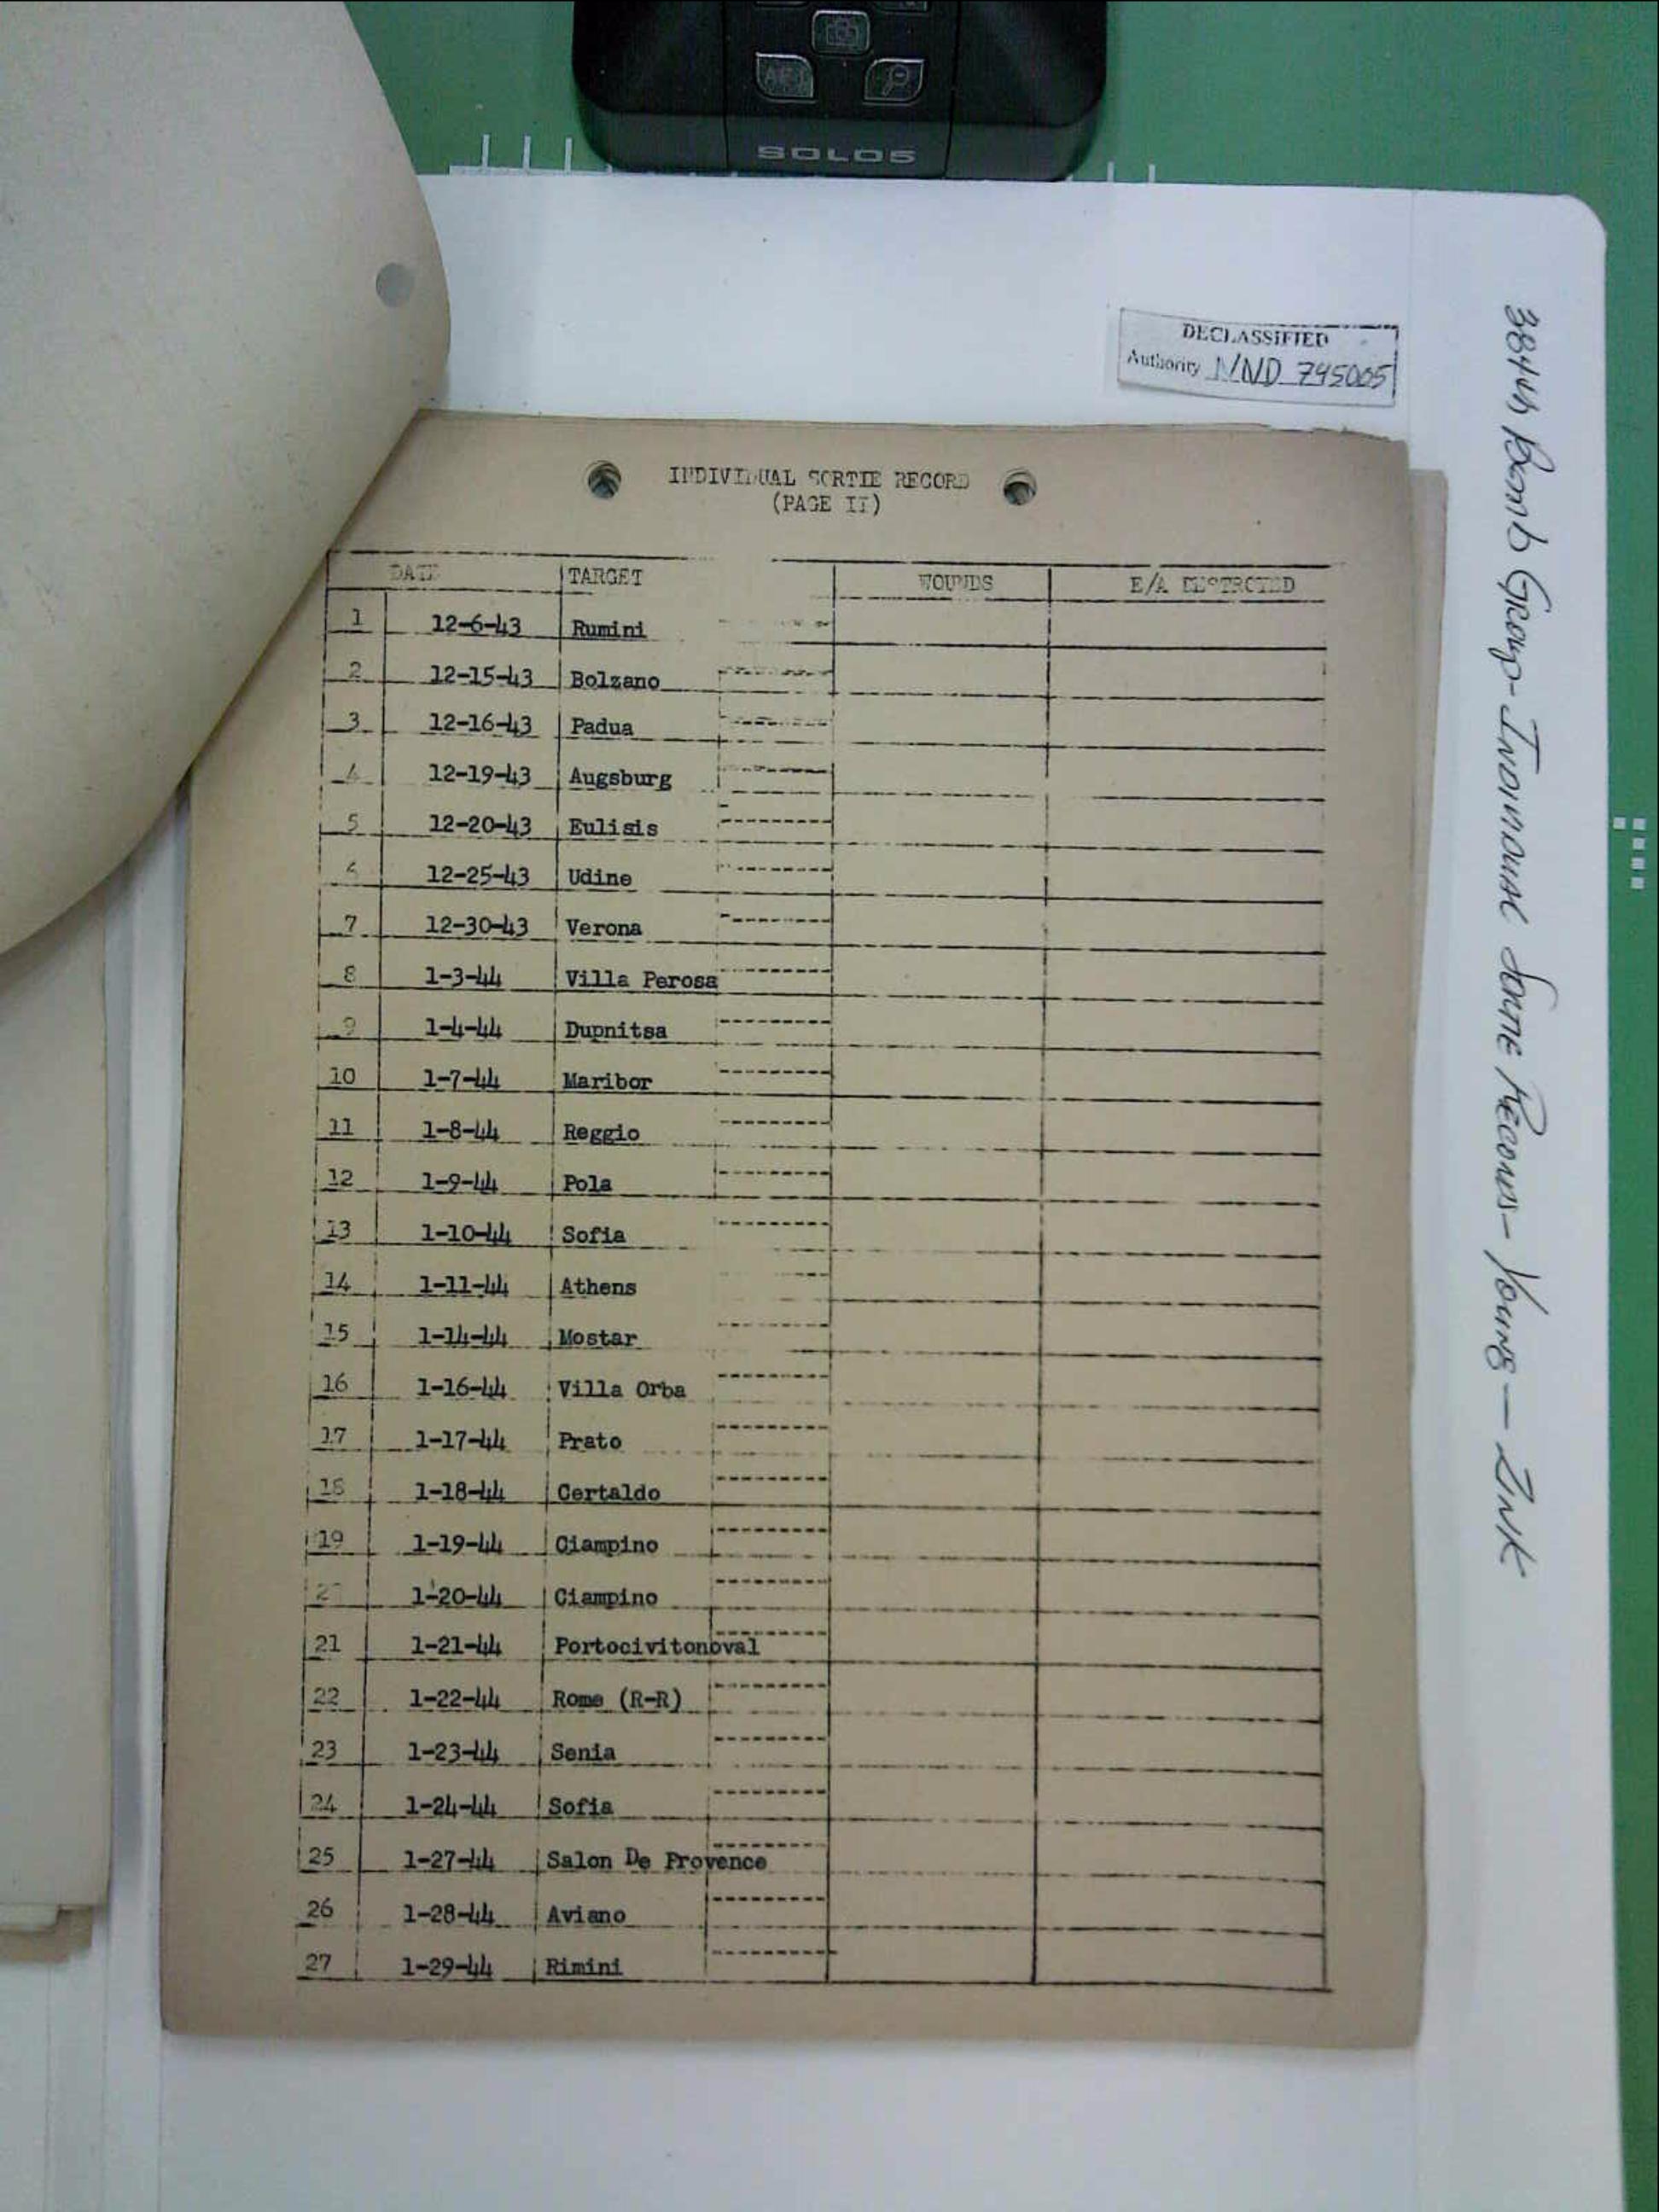 SOLO5
DECLASSIFIED
Authority NND 745005
384th Bomb Group - Individual Sortie Records - Young — Zink
INDIVIDUAL SORTIE RECORD
(PAGE II)
DATE TARGET WOUNDS E/A DESTROYED
1 12-6-43 Rumini
2 12-15-43 Bolzano
3 12-16-43 Padua
4 12-19-43 Augsburg
5 12-20-43 Eulisis
6 12-25-43 Udine
7 12-30-43 Verona
8 1-3-44 Villa Perosa
9 1-4-44 Dupnitsa
10 1-7-44 Maribor
11 1-8-44 Reggio
12 1-9-44 Pola
13 1-10-44 Sofia
14 1-11-44 Athens
15 1-14-44 Mostar
16 1-16-44 Villa Orba
17 1-17-44 Prato
18 1-18-44 Certaldo
19 1-19-44 Ciampino
20 1-20-44 Ciampino
21 1-21-44 Portocivitonoval
22 1-22-44 Rome (R-R)
23 1-23-44 Senia
24 1-24-44 Sofia
25 1-27-44 Salon De Provence
26 1-28-44 Aviano
27 1-29-44 Rimini